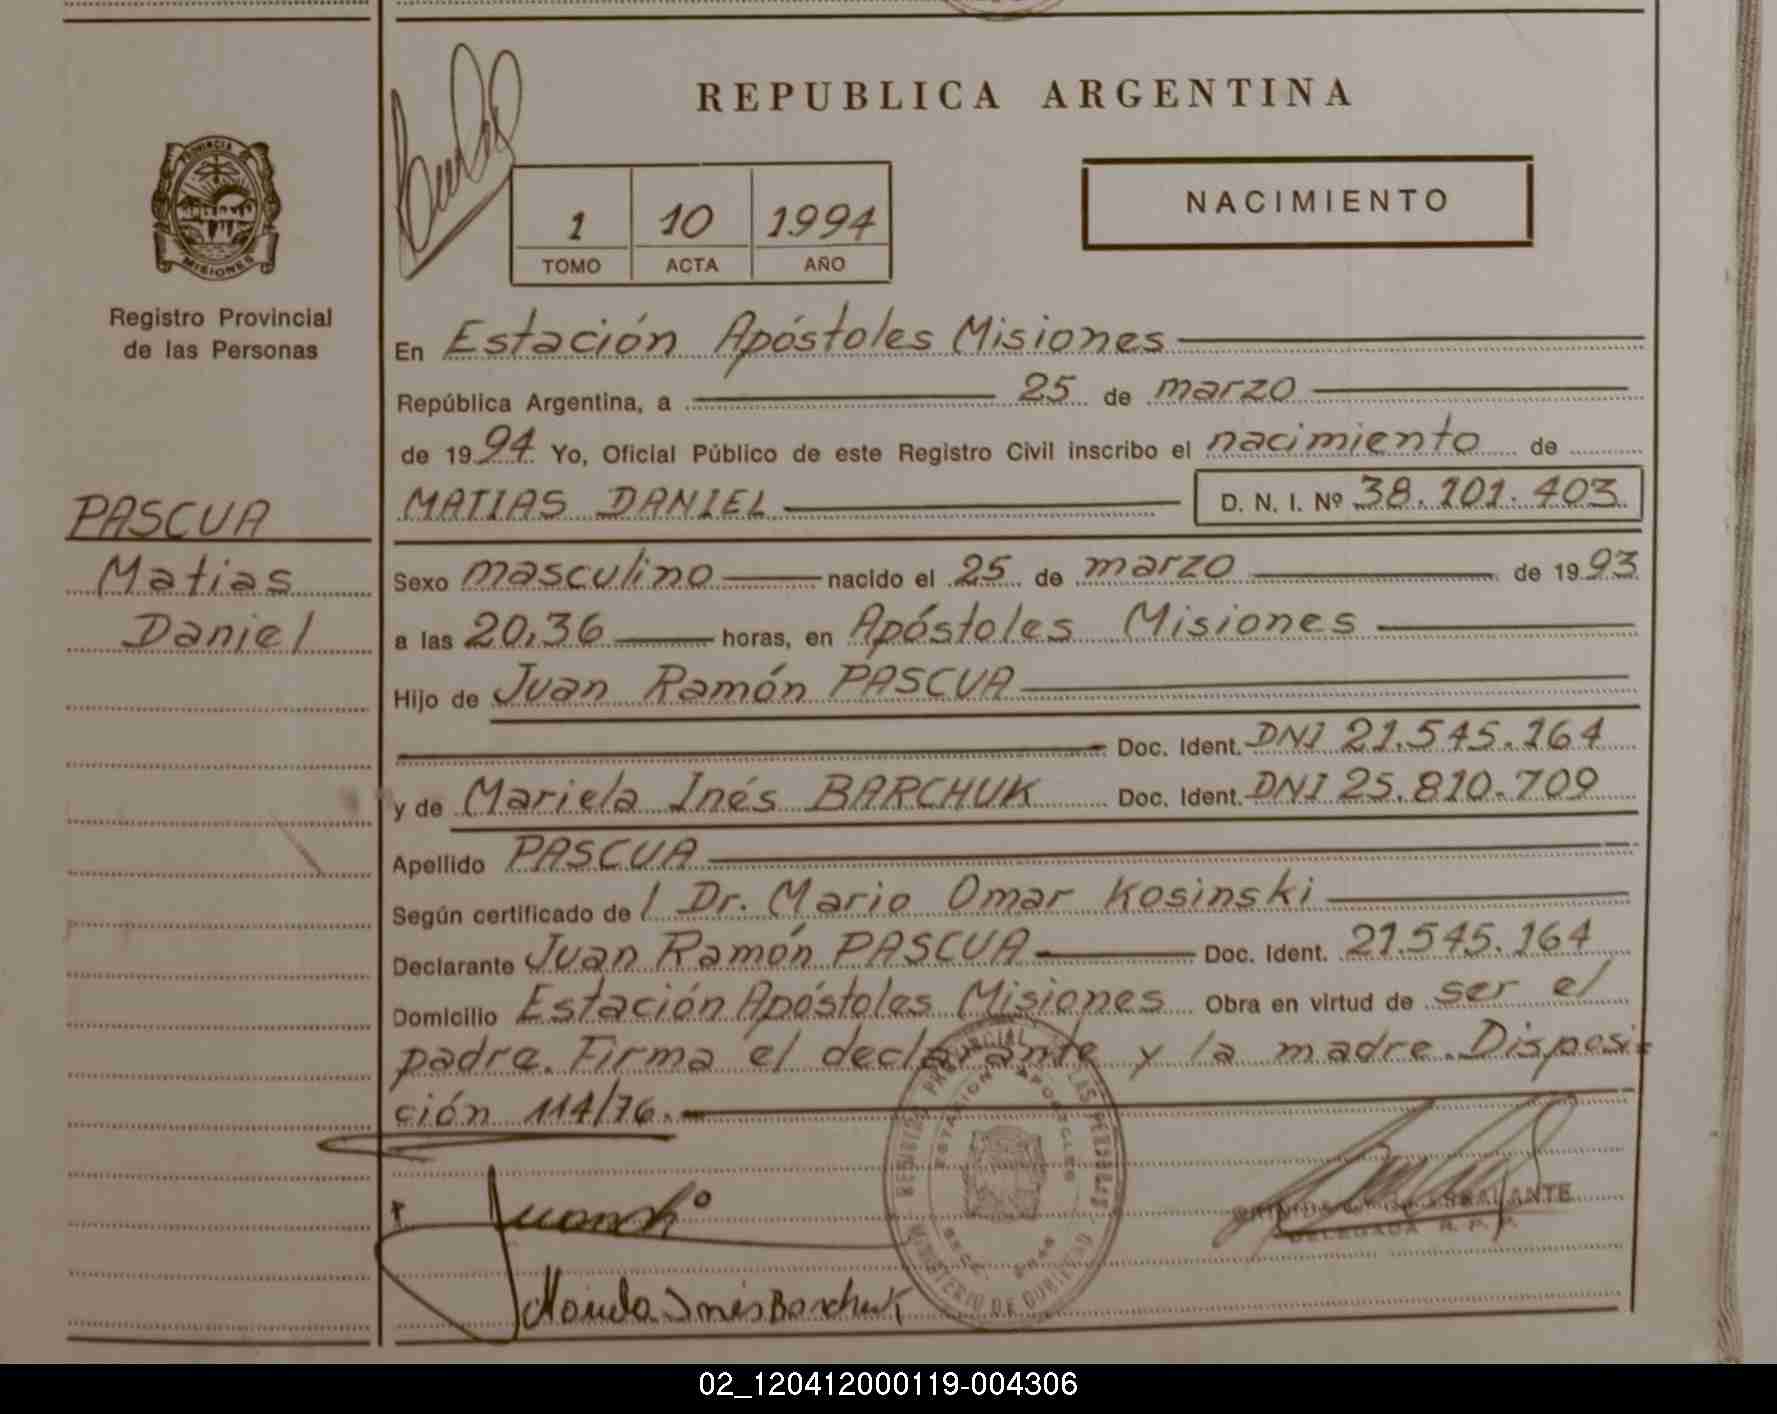 REPUBLICA ARGENTINA
PROVINCIA DE
MISIONES
Registro Provincial
de las Personas
1 10 1994
TOMO ACTA AÑO
NACIMIENTO
En Estación Apóstoles Misiones
República Argentina, a 25 de marzo
de 1994 Yo, Oficial Público de este Registro Civil inscribo el nacimiento de
MATIAS DANIEL D. N. I. Nº 38.101.403
PASCUA
Matias
Daniel
Sexo masculino nacido el 25 de marzo de 1993
a las 20,36 horas, en Apóstoles Misiones
Hijo de Juan Ramón PASCUA
Doc. Ident. DNI 21.545.164
y de Mariela Inés BARCHUK Doc. Ident. DNI 25.810.709
Apellido PASCUA
Según certificado de l Dr. Mario Omar Kosinski
Declarante Juan Ramón PASCUA Doc. Ident. 21.545.164
Domicilio Estación Apóstoles Misiones Obra en virtud de ser el
padre. Firma el declarante y la madre. Disposi=
ción 114/76.
REGISTRO PROVINCIAL DE LAS PERSONAS
ESTACION APOSTOLES
MINISTERIO DE GOBIERNO
DELEGADA R. P. P.
Mariela Inés Barchuk
02_120412000119-004306